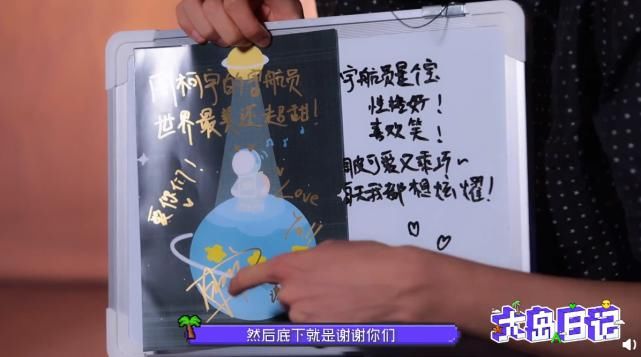 周柯宇的宇航员
世界最美还超甜！
爱你们！
Love
宇航员是个宝
性格好！
喜欢笑！
调皮可爱又乖巧～
每天我都想炫耀！
然后底下就是谢谢你们
大岛日记